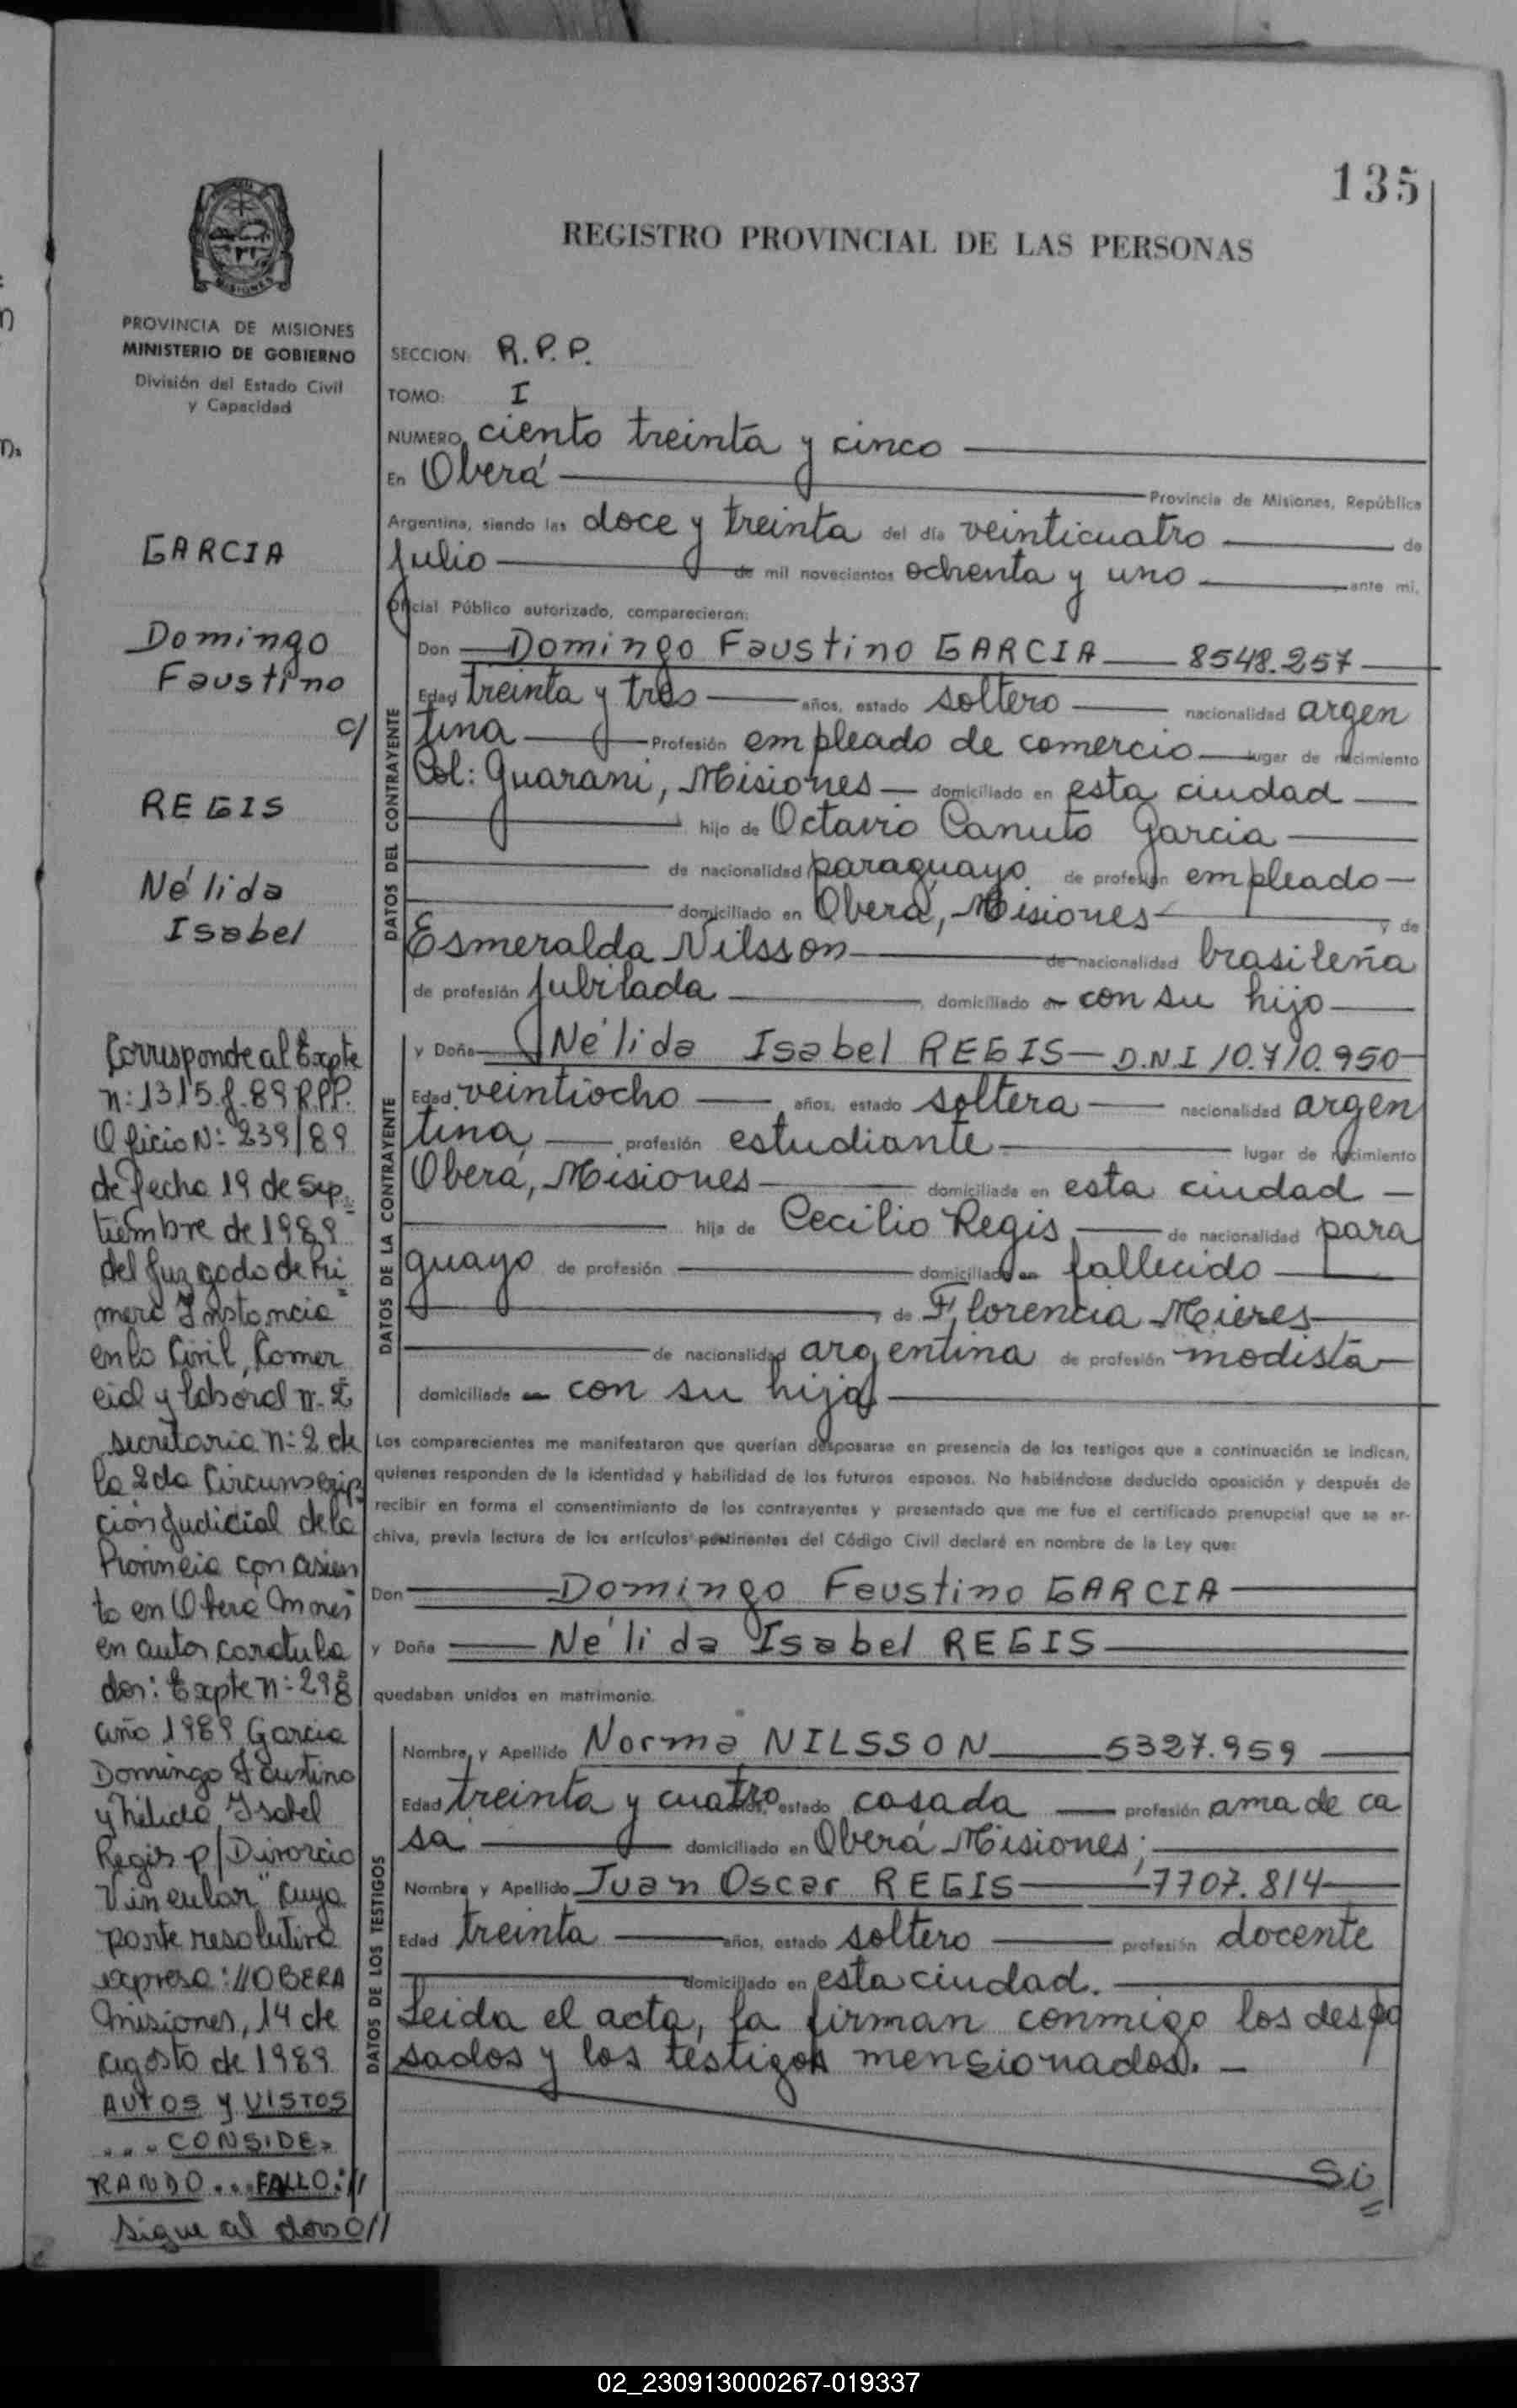 135
REGISTRO PROVINCIAL DE LAS PERSONAS
MISIONES
PROVINCIA DE MISIONES
MINISTERIO DE GOBIERNO
División del Estado Civil
y Capacidad
GARCIA
Domingo
Faustino
c/
REGIS
Nélida
Isabel
Corresponde al Expte
n: 1315.g-89 R.P.P.
Oficio N: 239/89
de fecha 19 de Sep
tiembre de 1989
del Juzgado de Pri
mera Instancia
en lo Civil, Comer
cial y laboral n- 2
secretaria n: 2 de
la 2da Circunscrip
ción Judicial de la
Provincia con asien
to en Obera Mnes
en autos caratula
dos: Expte n: 298
año 1989 Garcia
Domingo Faustino
y Nélida Isabel
Regis p/ Divorcio
Vincular" cuya
parte resolutiva
expresa: //OBERA
Misiones, 14 de
agosto de 1989
AUTOS y VISTOS
... CONSIDE-
RANDO... FALLO: //
sigue al dorso //
SECCION: R.P.P.
TOMO: I
NUMERO ciento treinta y cinco
En Oberá Provincia de Misiones, República
Argentina, siendo las doce y treinta del día veinticuatro de
Julio de mil novecientos ochenta y uno ante mi,
Oficial Público autorizado, comparecieron:
DATOS DEL CONTRAYENTE
Don Domingo Faustino GARCIA 8548.257
Edad treinta y tres años, estado soltero nacionalidad argen
tina Profesión empleado de comercio lugar de nacimiento
Col: Guarani, Misiones domiciliado en esta ciudad
hijo de Octavio Canuto Garcia
de nacionalidad paraguayo de profesión empleado
domiciliado en Oberá, Misiones y de
Esmeralda Nilsson de nacionalidad brasileña
de profesión jubilada domiciliado en con su hijo
DATOS DE LA CONTRAYENTE
y Doña Nélida Isabel REGIS D.N.I 10.710.950
Edad veintiocho años, estado soltera nacionalidad argen
tina profesión estudiante lugar de nacimiento
Oberá, Misiones domiciliada en esta ciudad
hija de Cecilio Regis de nacionalidad para
guayo de profesión domiciliado en fallecido
y de Florencia Mieres
de nacionalidad argentina de profesión modista
domiciliada en con su hija
Los comparecientes me manifestaron que querían desposarse en presencia de los testigos que a continuación se indican,
quienes responden de la identidad y habilidad de los futuros esposos. No habiéndose deducido oposición y después de
recibir en forma el consentimiento de los contrayentes y presentado que me fue el certificado prenupcial que se ar-
chiva, previa lectura de los artículos pertinentes del Código Civil declaré en nombre de la Ley que:
Don Domingo Faustino GARCIA
y Doña Nélida Isabel REGIS
quedaban unidos en matrimonio.
DATOS DE LOS TESTIGOS
Nombre y Apellido Norma NILSSON 5327.959
Edad treinta y cuatro años, estado casada profesión ama de ca
sa domiciliado en Oberá Misiones;
Nombre y Apellido Juan Oscar REGIS 7707.814
Edad treinta años, estado soltero profesión docente
domiciliado en esta ciudad.
Leida el acta, la firman conmigo los despo
sados y los testigos mensionados. -
Si
02_230913000267-019337